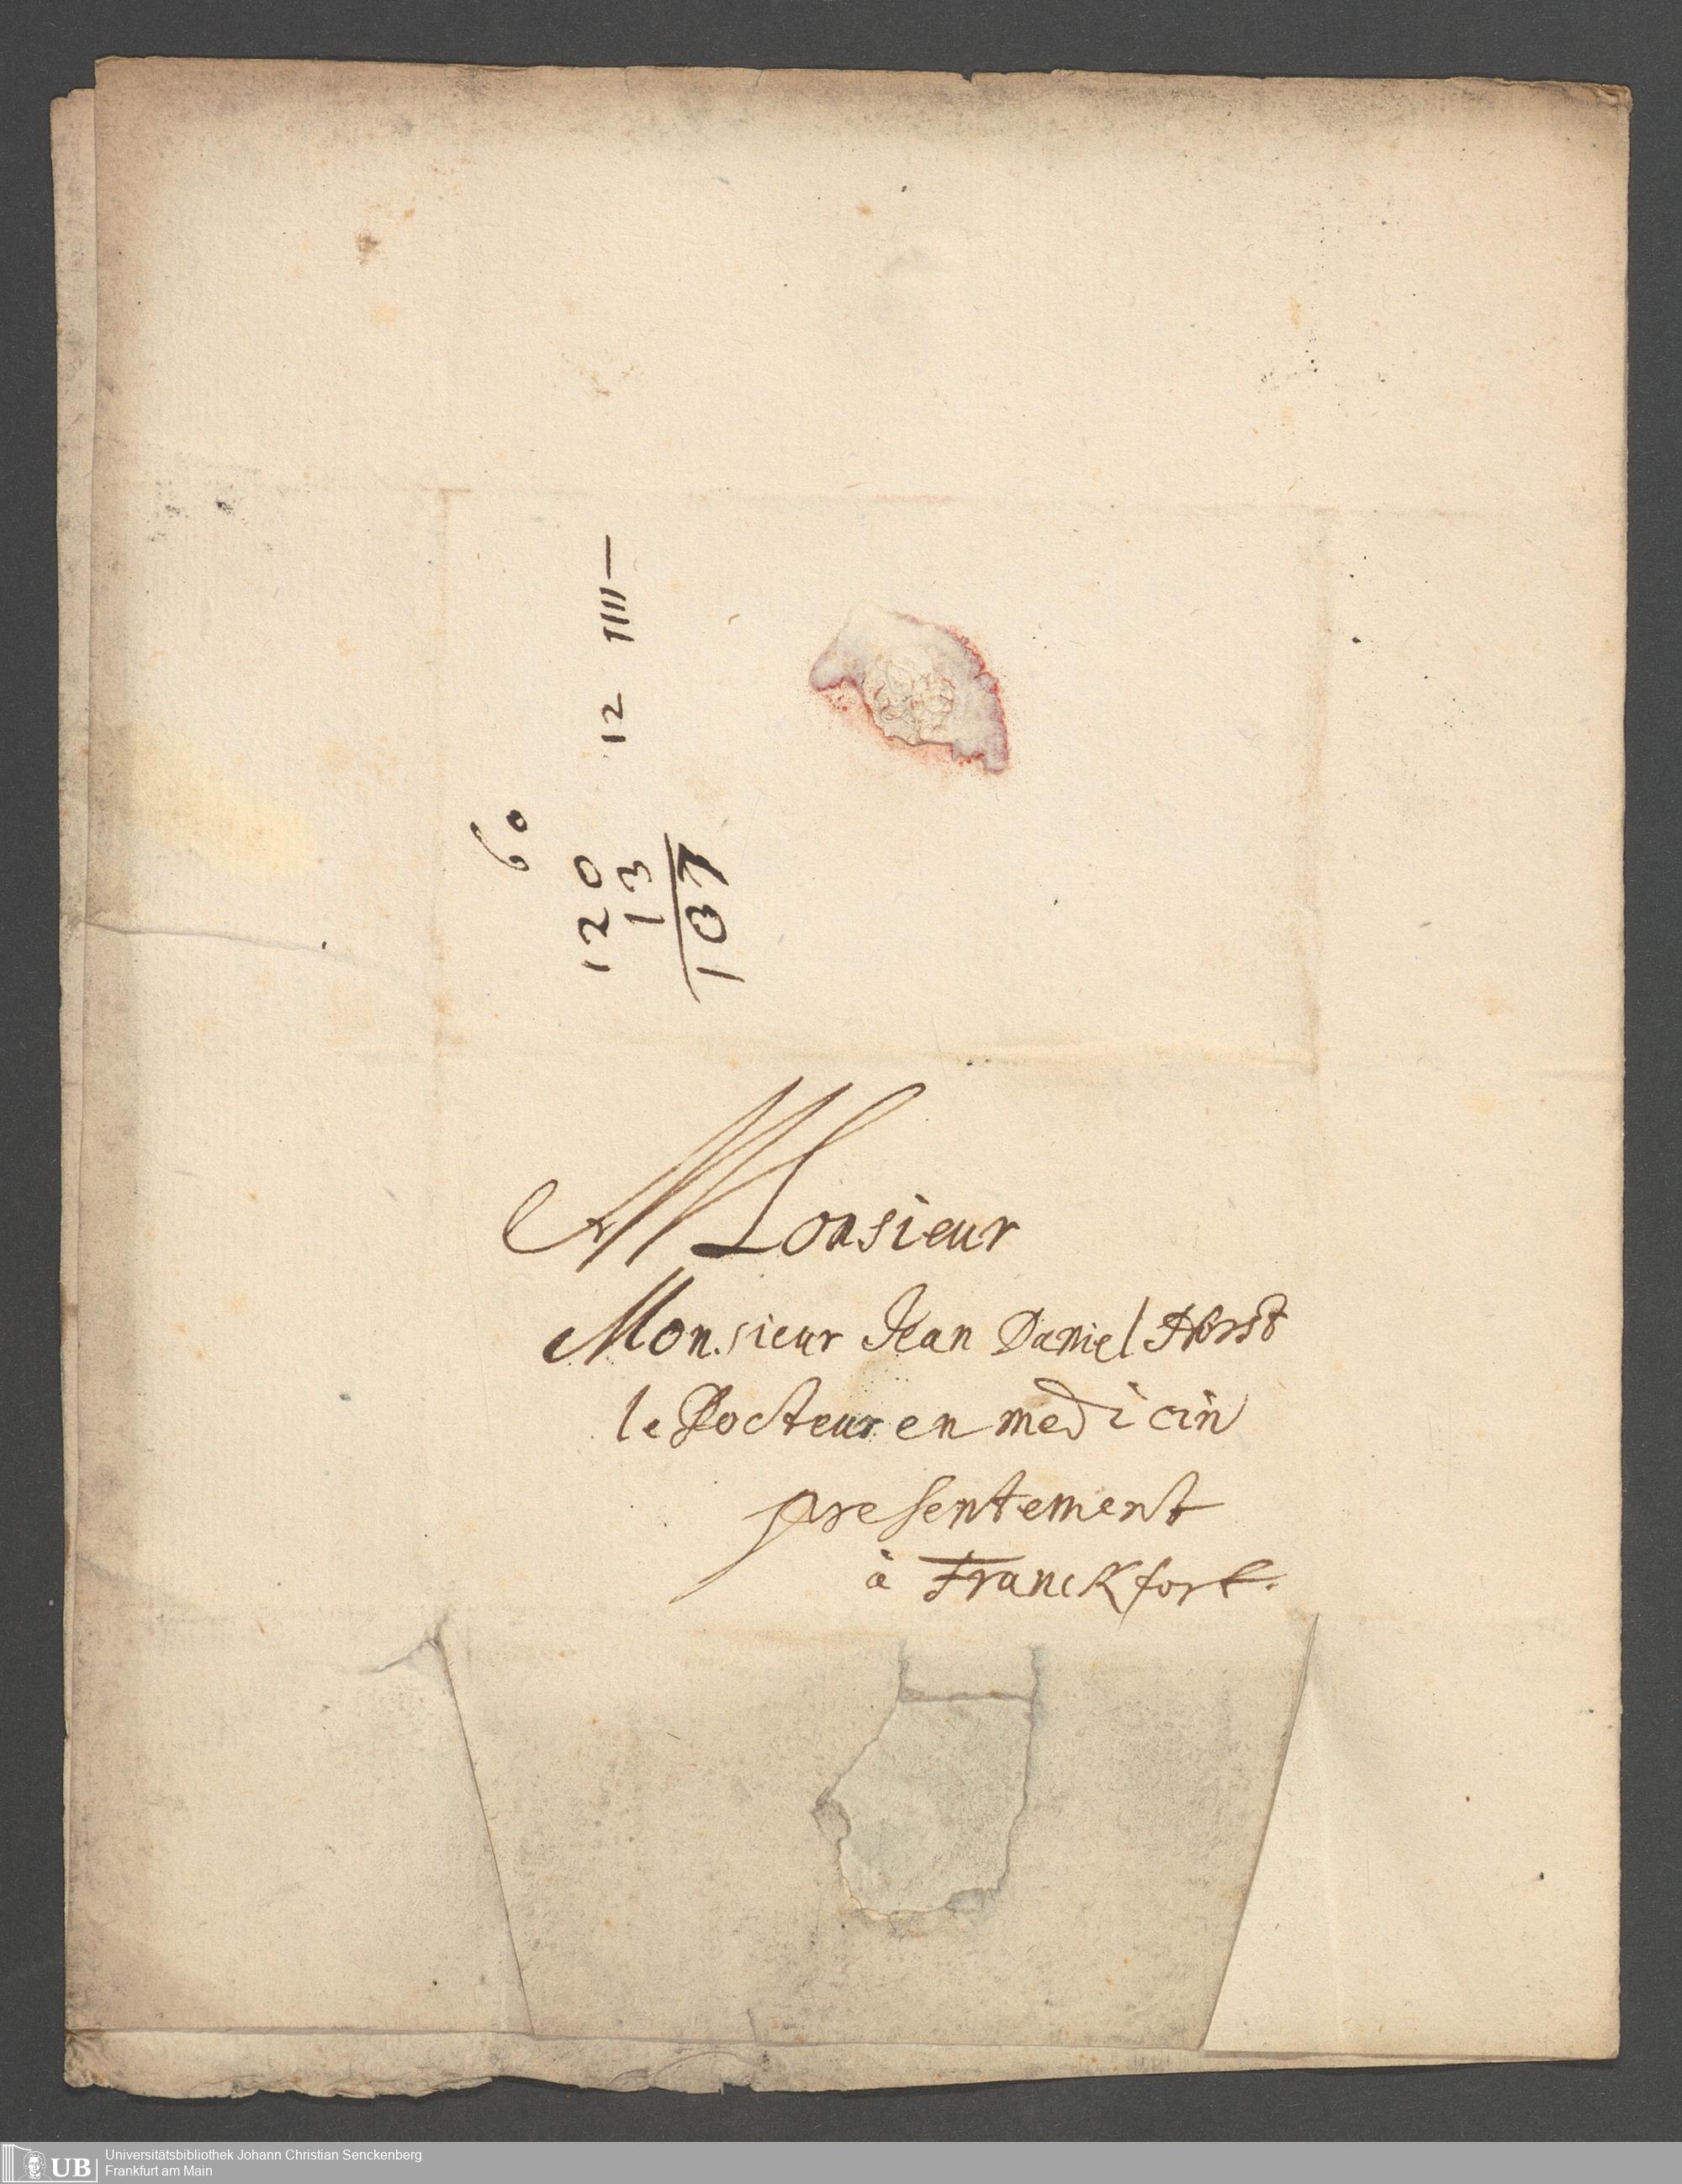 12 1111 —
60
120
13
107
Monsieur
Monsieur Jean Daniel Horst
le Docteur en medicin
presentement
à Franckfort.
UB Universitätsbibliothek Johann Christian Senckenberg
Frankfurt am Main